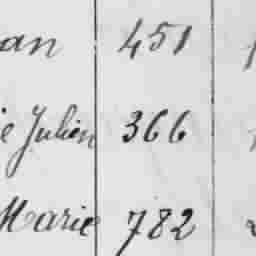 an 451
e Julien 366
Marie 782